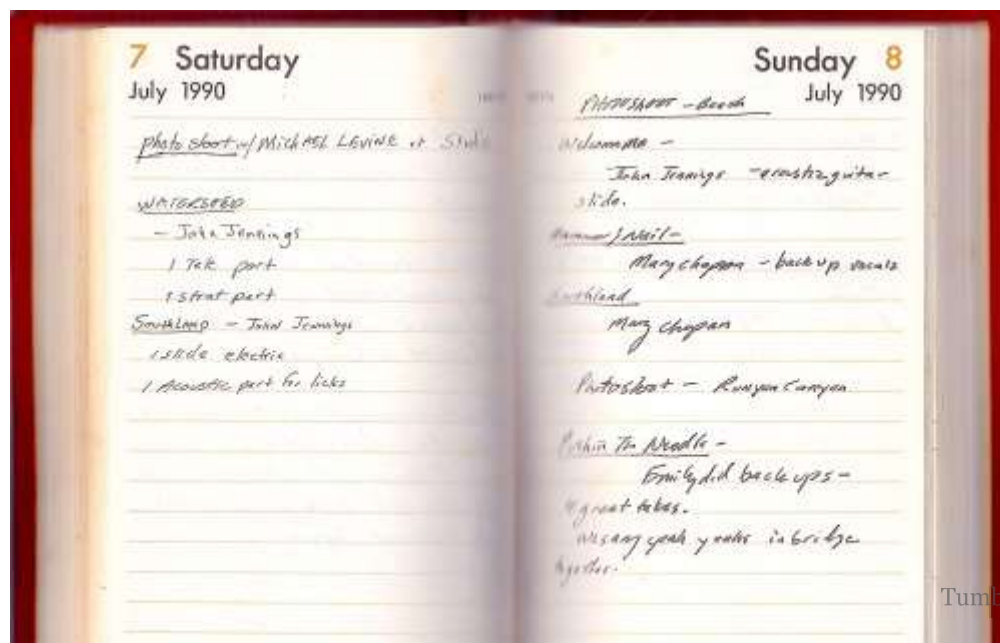 7 Saturday
July 1990
photo shoot w/ MICHAEL LEVINE at Studio
WATERSHED
- John Jennings
1 Tele part
1 strat part
Southland - John Jennings
1 slide electric
1 Acoustic part for licks
Sunday 8
July 1990
PHOTOSHOOT - Beach
Welcome me -
John Jennings - acoustic guitar
slide.
Hammer & Nail -
Mary chapin - back up vocals
Southland
Mary chapin
Photoshoot - Runyon Canyon
Pushin The Needle -
Emily did back ups -
great takes.
we sang yeah yeahs in bridge
together.
Tumb